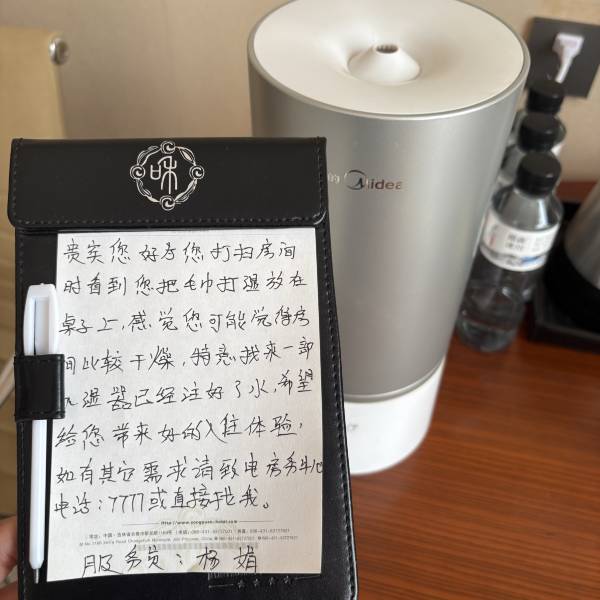 和
贵宾您好为您打扫房间
时看到您把毛巾打湿放在
桌子上,感觉您可能觉得房
间比较干燥,特意找来一部
加湿器已经注好了水,希望
给您带来好的入住体验,
如有其它需求请致电房务中心
电话:7777或直接找我。
服务员:杨娟
美的 Midea